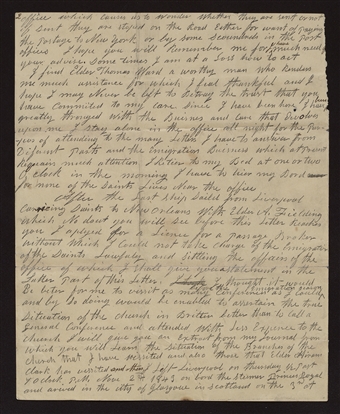 office which causes us to wonder whether they are sent or not
If sent they are stoped on the Road Either for want of paying
the Postage to New York or by some Scoundrels in the Post
office I hope you will Remember me for I much need
your advice some times I am at a Loss how to act
I find Elder Thomas Ward a worthy man who Renders
me much assistance for which I feel thankful and I
hope I may Never be left to betray the trust that you
have Committed to my care Since I have been here I have
greatly thronged with the Buisnes and Care that Devolves
upon me I Stay alone in the office all night for the
of attending to the many Letters I have to answer from
Different parts and the Emigration Buisness which at present
Requires much attention I Retire to my Bed at one or two
O clock in the morning I have to hire my Bord
for none of the Saints Lives Near the office
After the last ship Sailed from Liverpool
Conveying Saints to New Orleans With Elder A. Fielding
Which No doubt you will See before this Letter Reaches
you I aplyed for a Licence for a passage Broker
Without which I Could not take charge of the Emigration
of the Saints Lawfuly and Settling the affairs of the
office of which I Shall give you a statement in the
Latter part of this Letter I thought it would
be better for me to visit
and by So doing would be enabled to ascertain the true
Situation of the church in Britten Better than to Call a
General Conference and attended With Less Expence to the
Church I will give you an Extract from my Journal from
Which you will Learn the Situation of the Branches of the
Church that I have visited and also those that Elder Hiram
Clark has visited I left Liverpool on thursday at
4 oclock P.M. Nov 2nd 1843 on bord the Steemer Princes Royal
and arived in the city of Glasgow in Scotland on the 3rd at